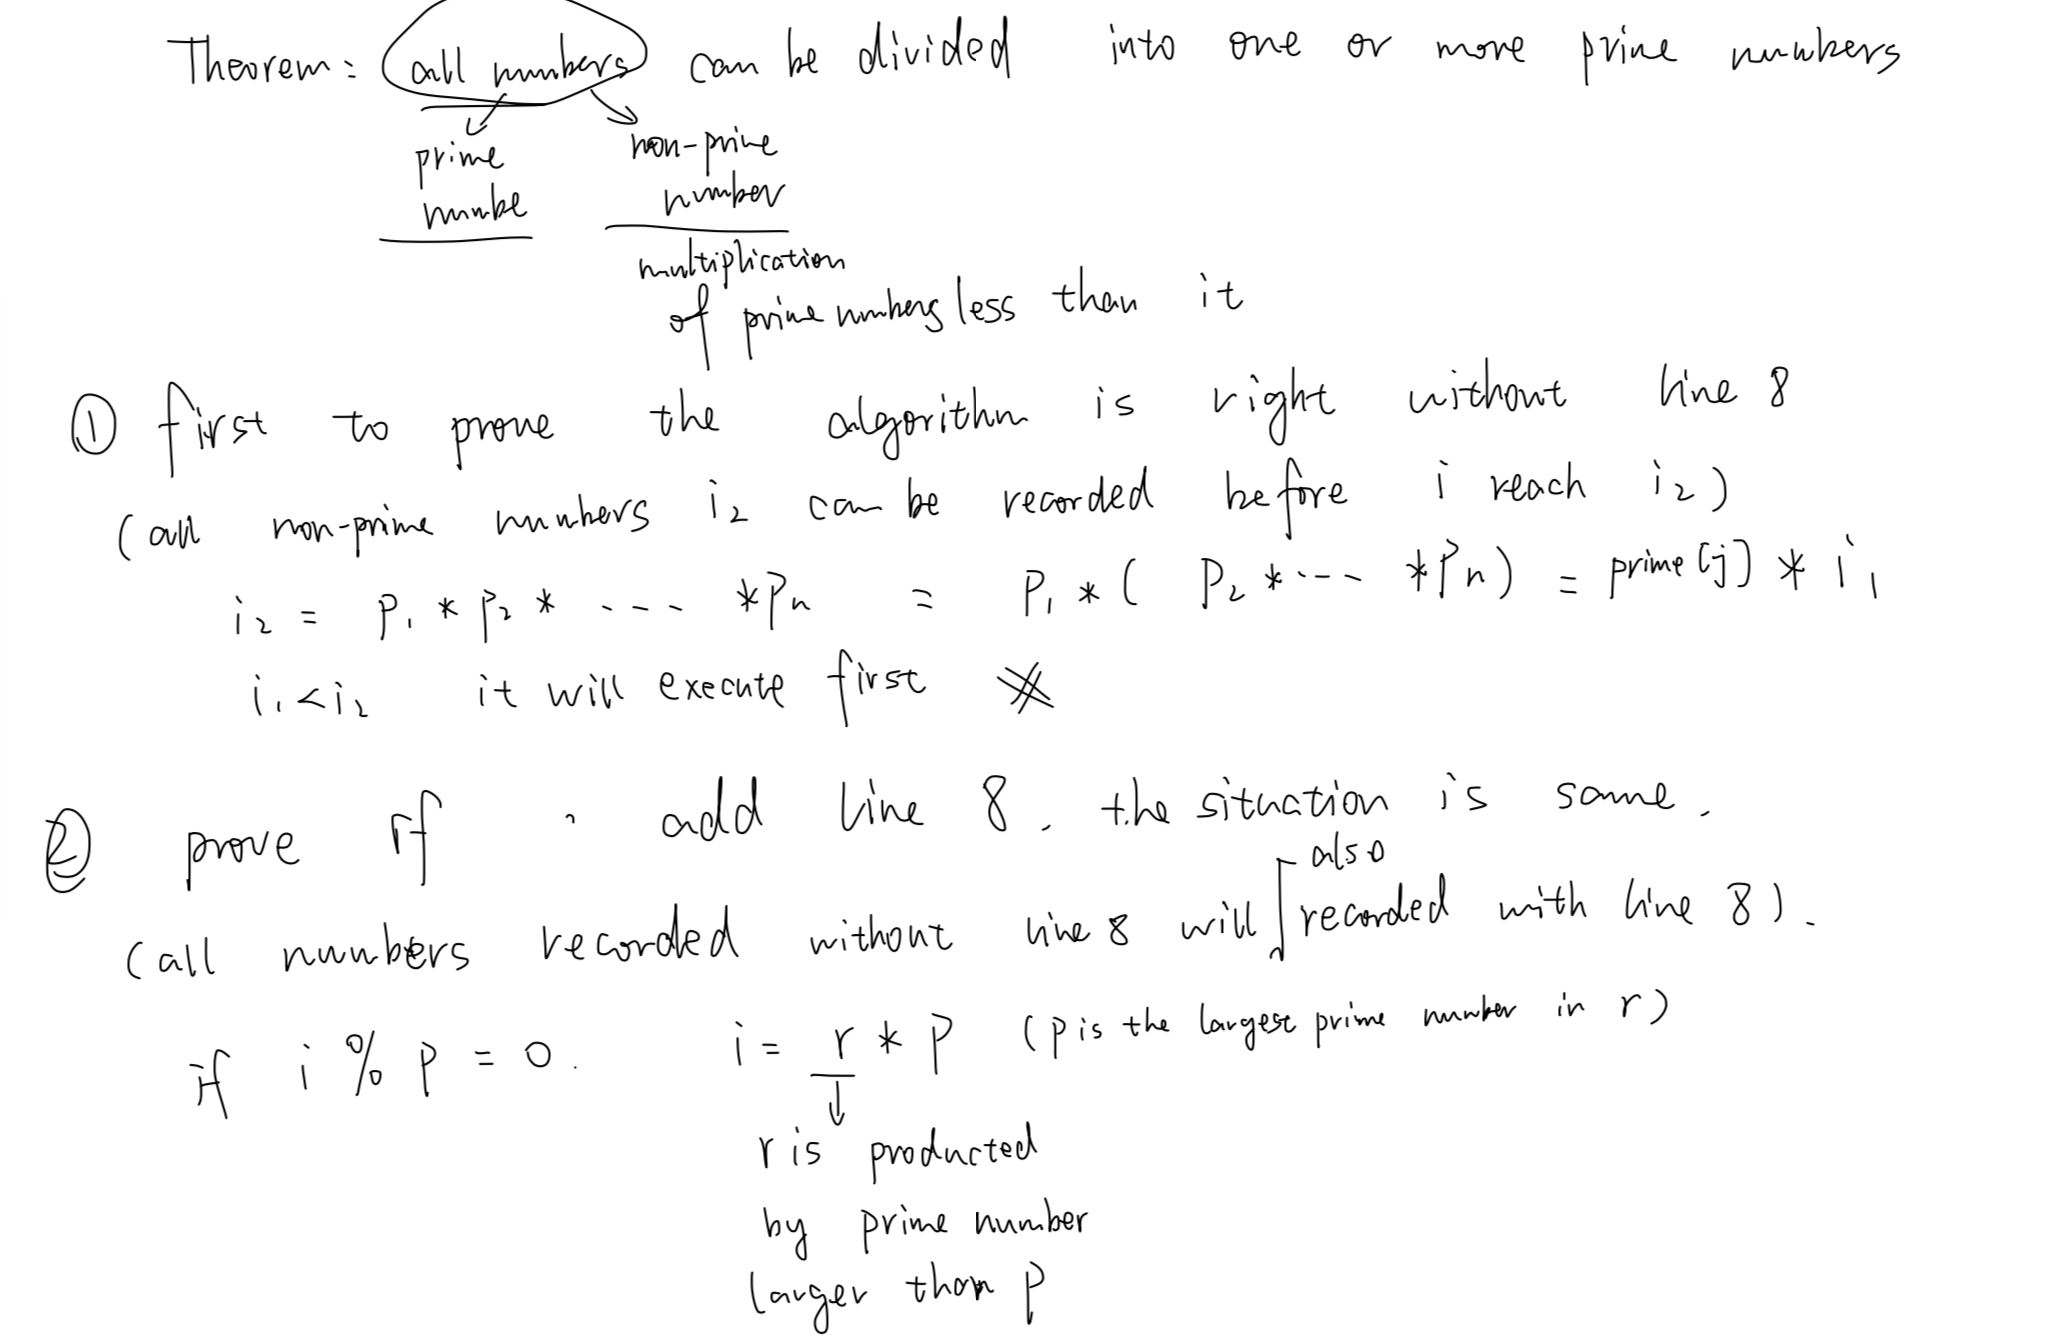 Theorem: all numbers can be divided into one or more prime numbers
prime
numbe
non-prime
number
multiplication
of prime numbers less than it
① first to prove the algorithm is right without line 8
(all non-prime numbers i₂ can be recorded before i reach i₂)
i₂ = P₁ * P₂ * ---- * Pn = P₁ * ( P₂ * --- * Pn) = prime[j] * i₁
i₁ < i₂ it will execute first
② prove if add line 8, the situation is same.
also
(all numbers recorded without line 8 will recorded with line 8).
if i % p = 0. i = r * p (p is the largest prime number in r)
r is producted
by prime number
larger than p